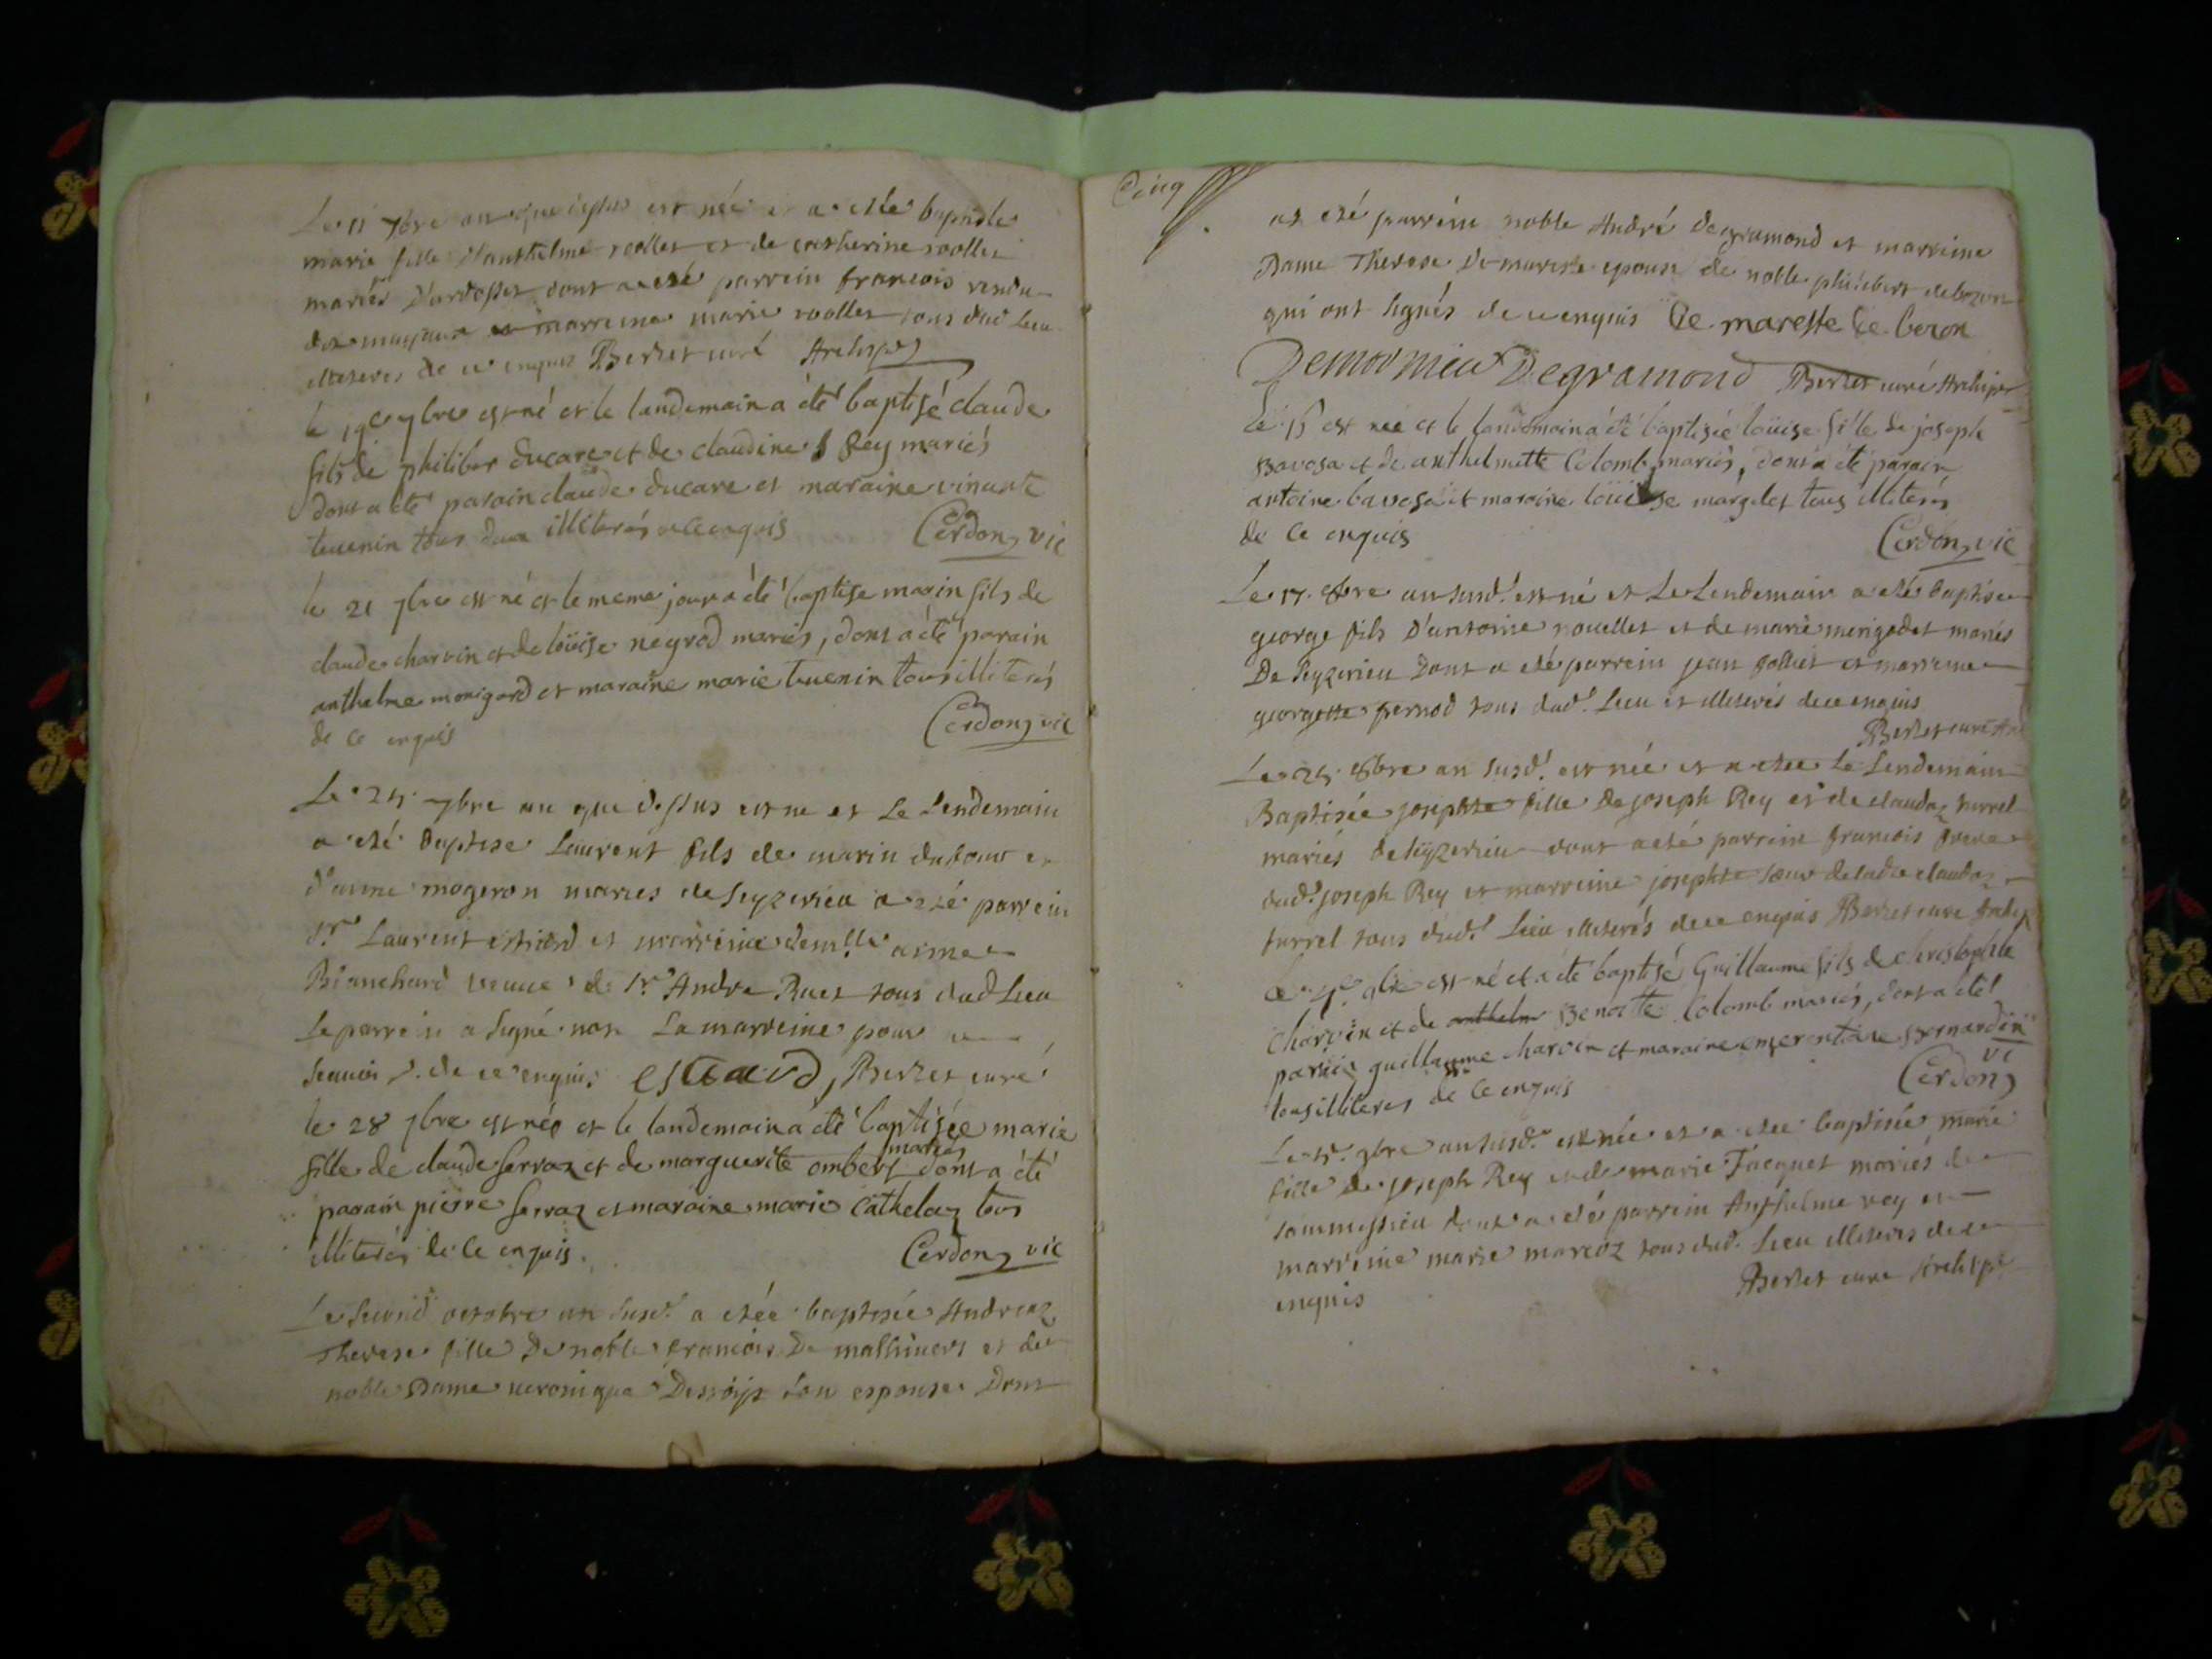 Le 11 7bre an que dessus est née et a etée baptisée
marie fille d'anthelme rollet et de catherine rollet
mariés d'ardosset dont a eté parrein francois rendu
et marreine marie rollet tous dud lieu
illiteres de ce enquis Berlet curé Archip
le 19e 7bre est né et le landemain a été baptisé claude
fils de philiber ducare et de claudine Rey mariés
dont a été parain claude ducare et maraine vincente
tuenin tous deux illiterés de ce enquis Cerdon vic
le 21 7bre est né et le meme jour a été baptise marin fils de
claude charvin et de loüise negrod mariés, dont a été parain
anthelme monigard et maraine marie tuenin tous illiterés
de ce enquis Cerdon vic
Le 24 7bre an que dessus est né et Le Lendemain
a eté baptise Laurent fils de marin dufour et
d'anne mogeron maries de Seyzerieu a eté parrein
Sr Laurent estiard et marreine demlle aimée
Blanchard veuve de Sr Andre Ruet tous dud Lieu
Le parrein a signé non La marreine pour ne
scavoir de ce enquis Berlet curé
le 28 7bre est née et le landemain a été baptisée marie
fille de claude serraz et de marguerite ombert mariés dont a été
parain pierre serraz et maraine marie Cathelaz tous
illiterés de ce enquis. Cerdon vic
Le Second octobre an susd. a etée baptisée Andreaz
Therese fille De noble francois De malhivert et de
noble Dame veronique son espouse Dont
Cinq
at eté parrein noble André degramond et marreine
Dame Therese De mareste epouse de noble philibert debozon
qui ont signés de ce enquis De mareste De beron
Degramond Berlet curé Archip
Le 15 est née et le landemain a été baptisée loüise fille de joseph
Bavosa et de anthelmette Colomb mariés, dont a été parain
antoine bavosa et maraine loüise margilet tous illiterés
de ce enquis Cerdon vic
Le 17 8bre an susd. est né et Le Lendemain a eté baptise
george fils d'antoine nouellet et de marie merigodet mariés
De Seyzerieu Dont a eté parrein jean golliet et marreine
georgette pernod tous dud. Lieu et illiterés de ce enquis
Berlet curé Arc
Le 25 8bre an susd. est née et a etée Le Lendemain
Baptisée josephte fille de joseph Rey et de claudaz turrel
mariés de Seyzerieu dont a eté parrein francois frere
dud. joseph Rey et marreine josephte soeur de ladte claudaz
turrel tous dud. Lieu illiterés de ce enquis Berlet cure Archip
Le 4e 9bre est né et a été baptisé Guillaume fils de christophle
charvin et de anthelm Benoite Colomb mariés, dont a été
parain guillaume charvin et maraine emerentiane Bernardin
tous illiteres de ce enquis Cerdon vi
Le 5e 9bre an susd. est née et a etée baptisée marie
fille de joseph Rey et de marie Jacquet mariés de
dont a eté parrein Anthelme rey et
marreine marie marcoz tous dud. Lieu illiterés de ce
enquis Berlet cure Archipr